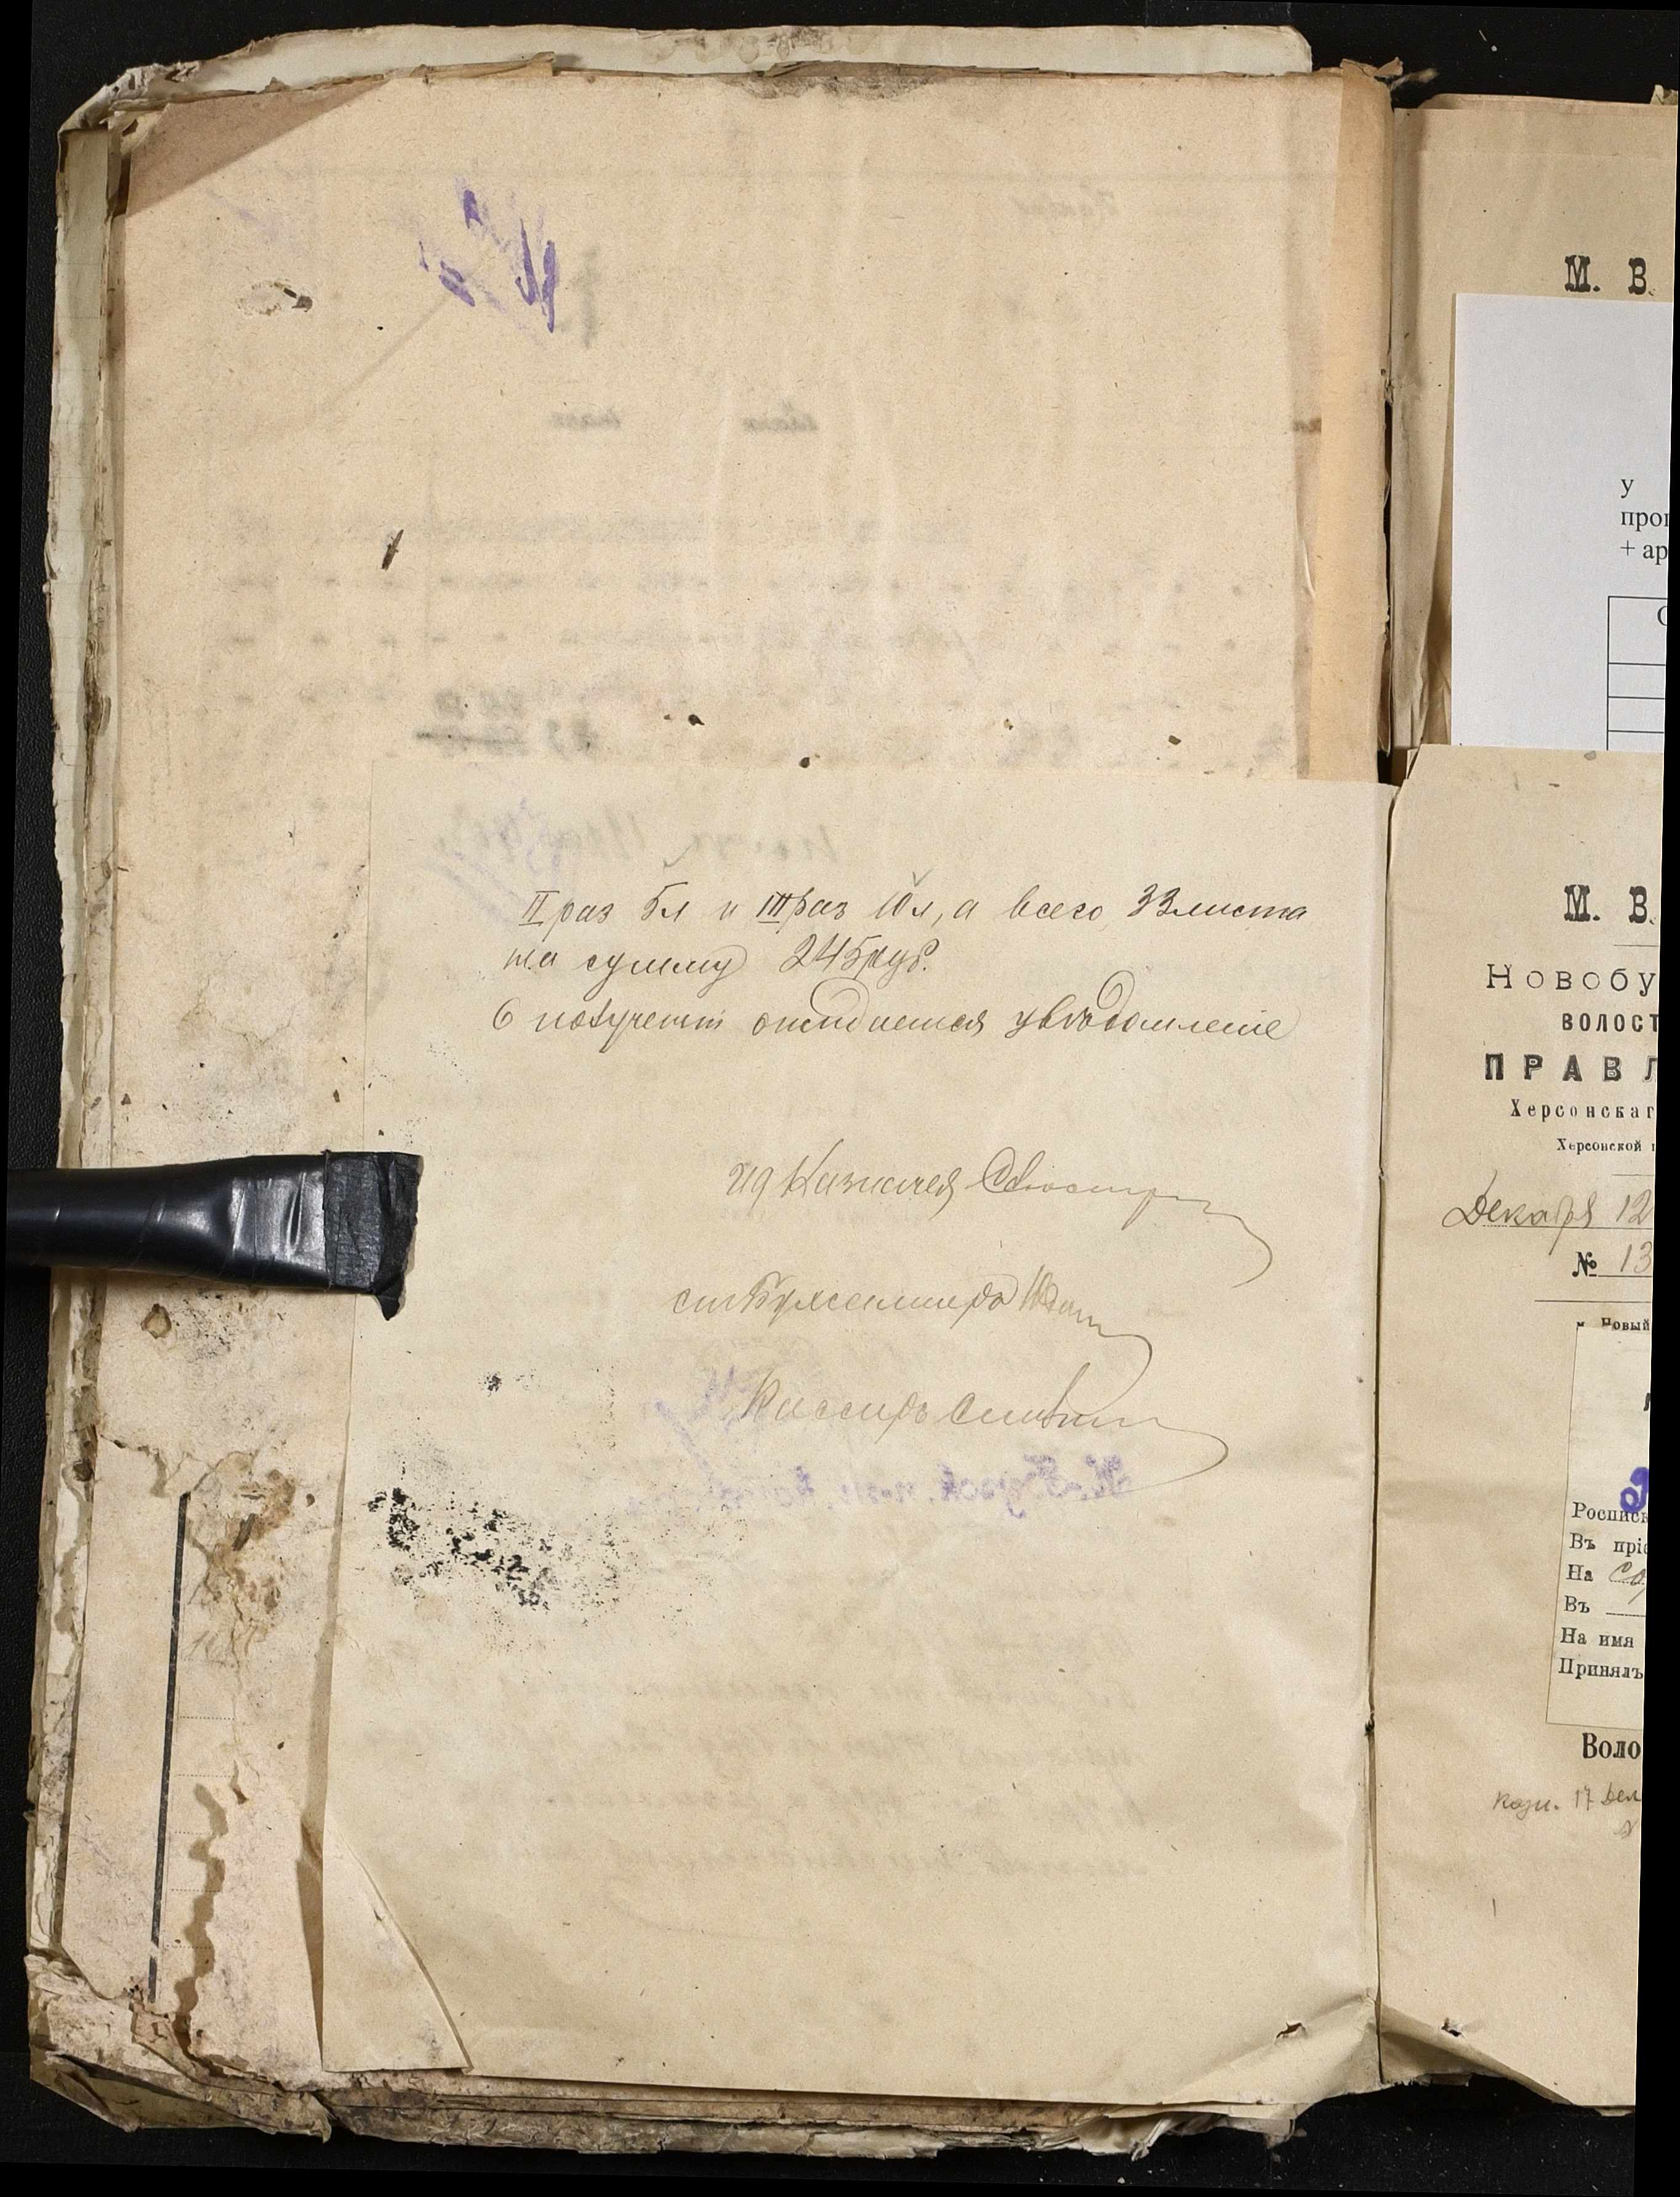 II раз 5л и III раз 10л, а всего 33 листа
на сумму 245 руб.
О получении ожидается увѣдомленіе
ИД Казначея
ст Бухгалтеръ
Кассиръ
М. В.
у
+ ар
М. В.
Новобу
ВОЛОСТ
ПРАВЛ
Херсонскаг
Херсонской
Декабря 12
№ 13
Новый
Росписк
Въ прі
На
Въ
На имя
Принялъ
Воло
Казн. 17 Дек